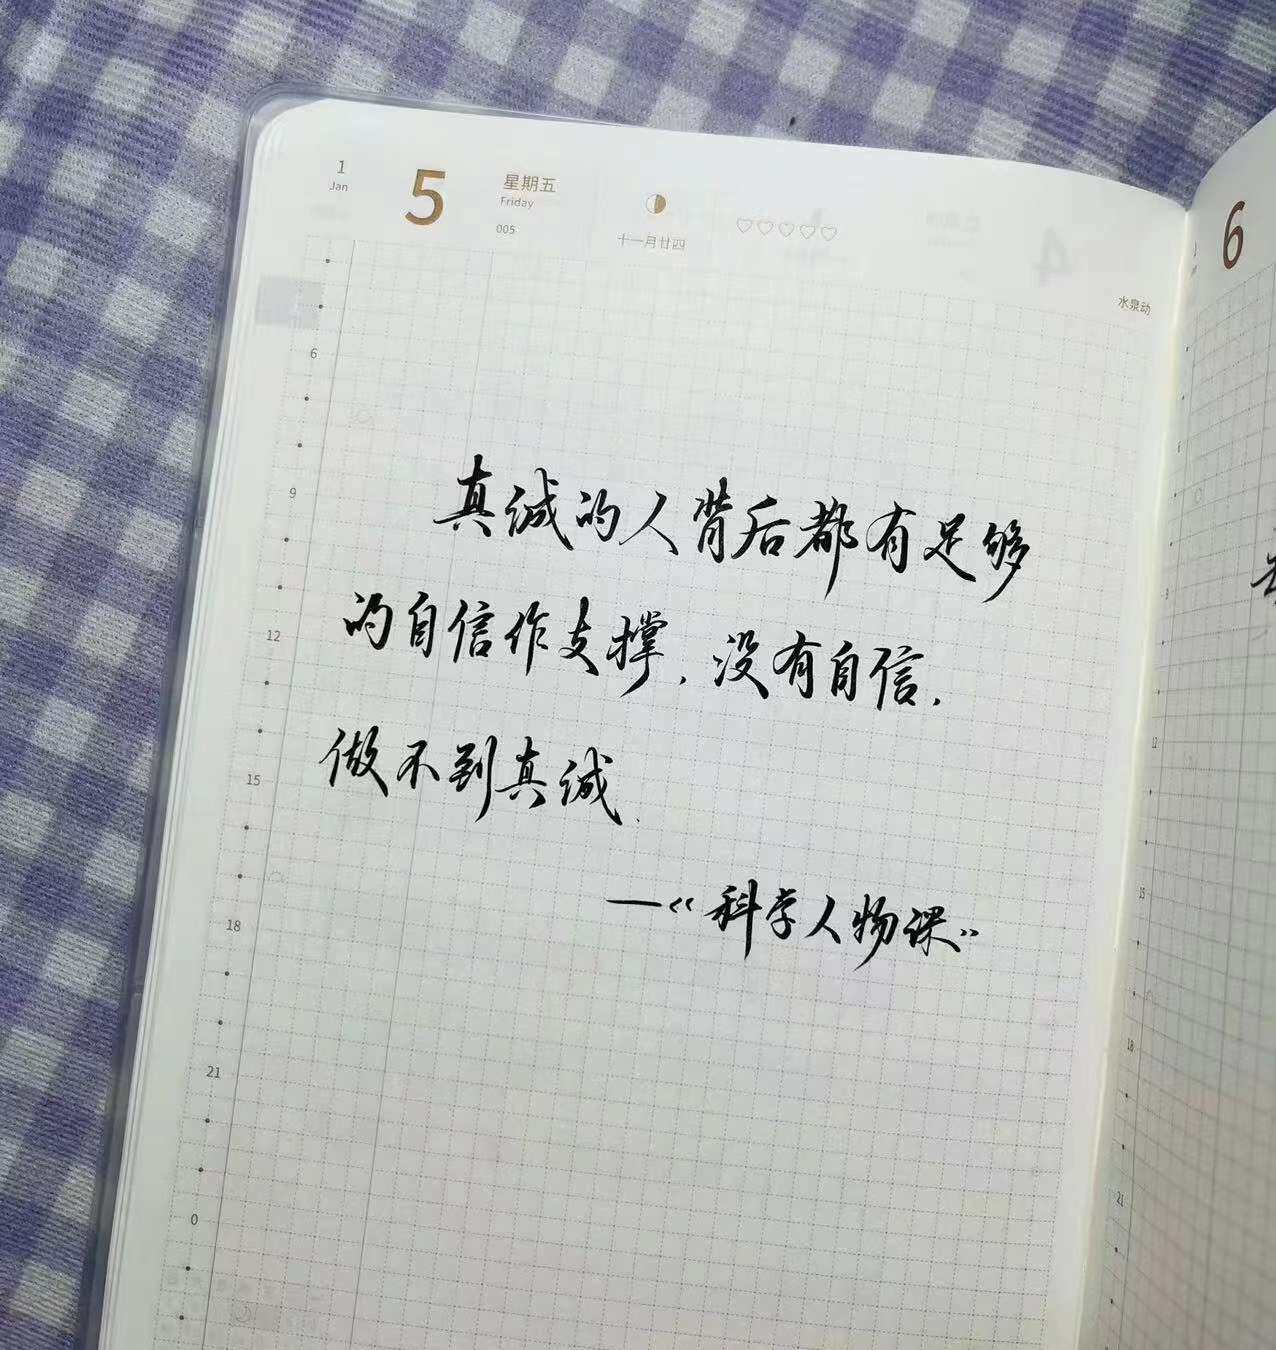 1
Jan
5
星期五
Friday
005
十一月廿四
4
水泉动
6
6
9
12
15
18
21
0
真诚的人背后都有足够
的自信作支撑，没有自信，
做不到真诚.
—《科学人物课》
12
15
18
21